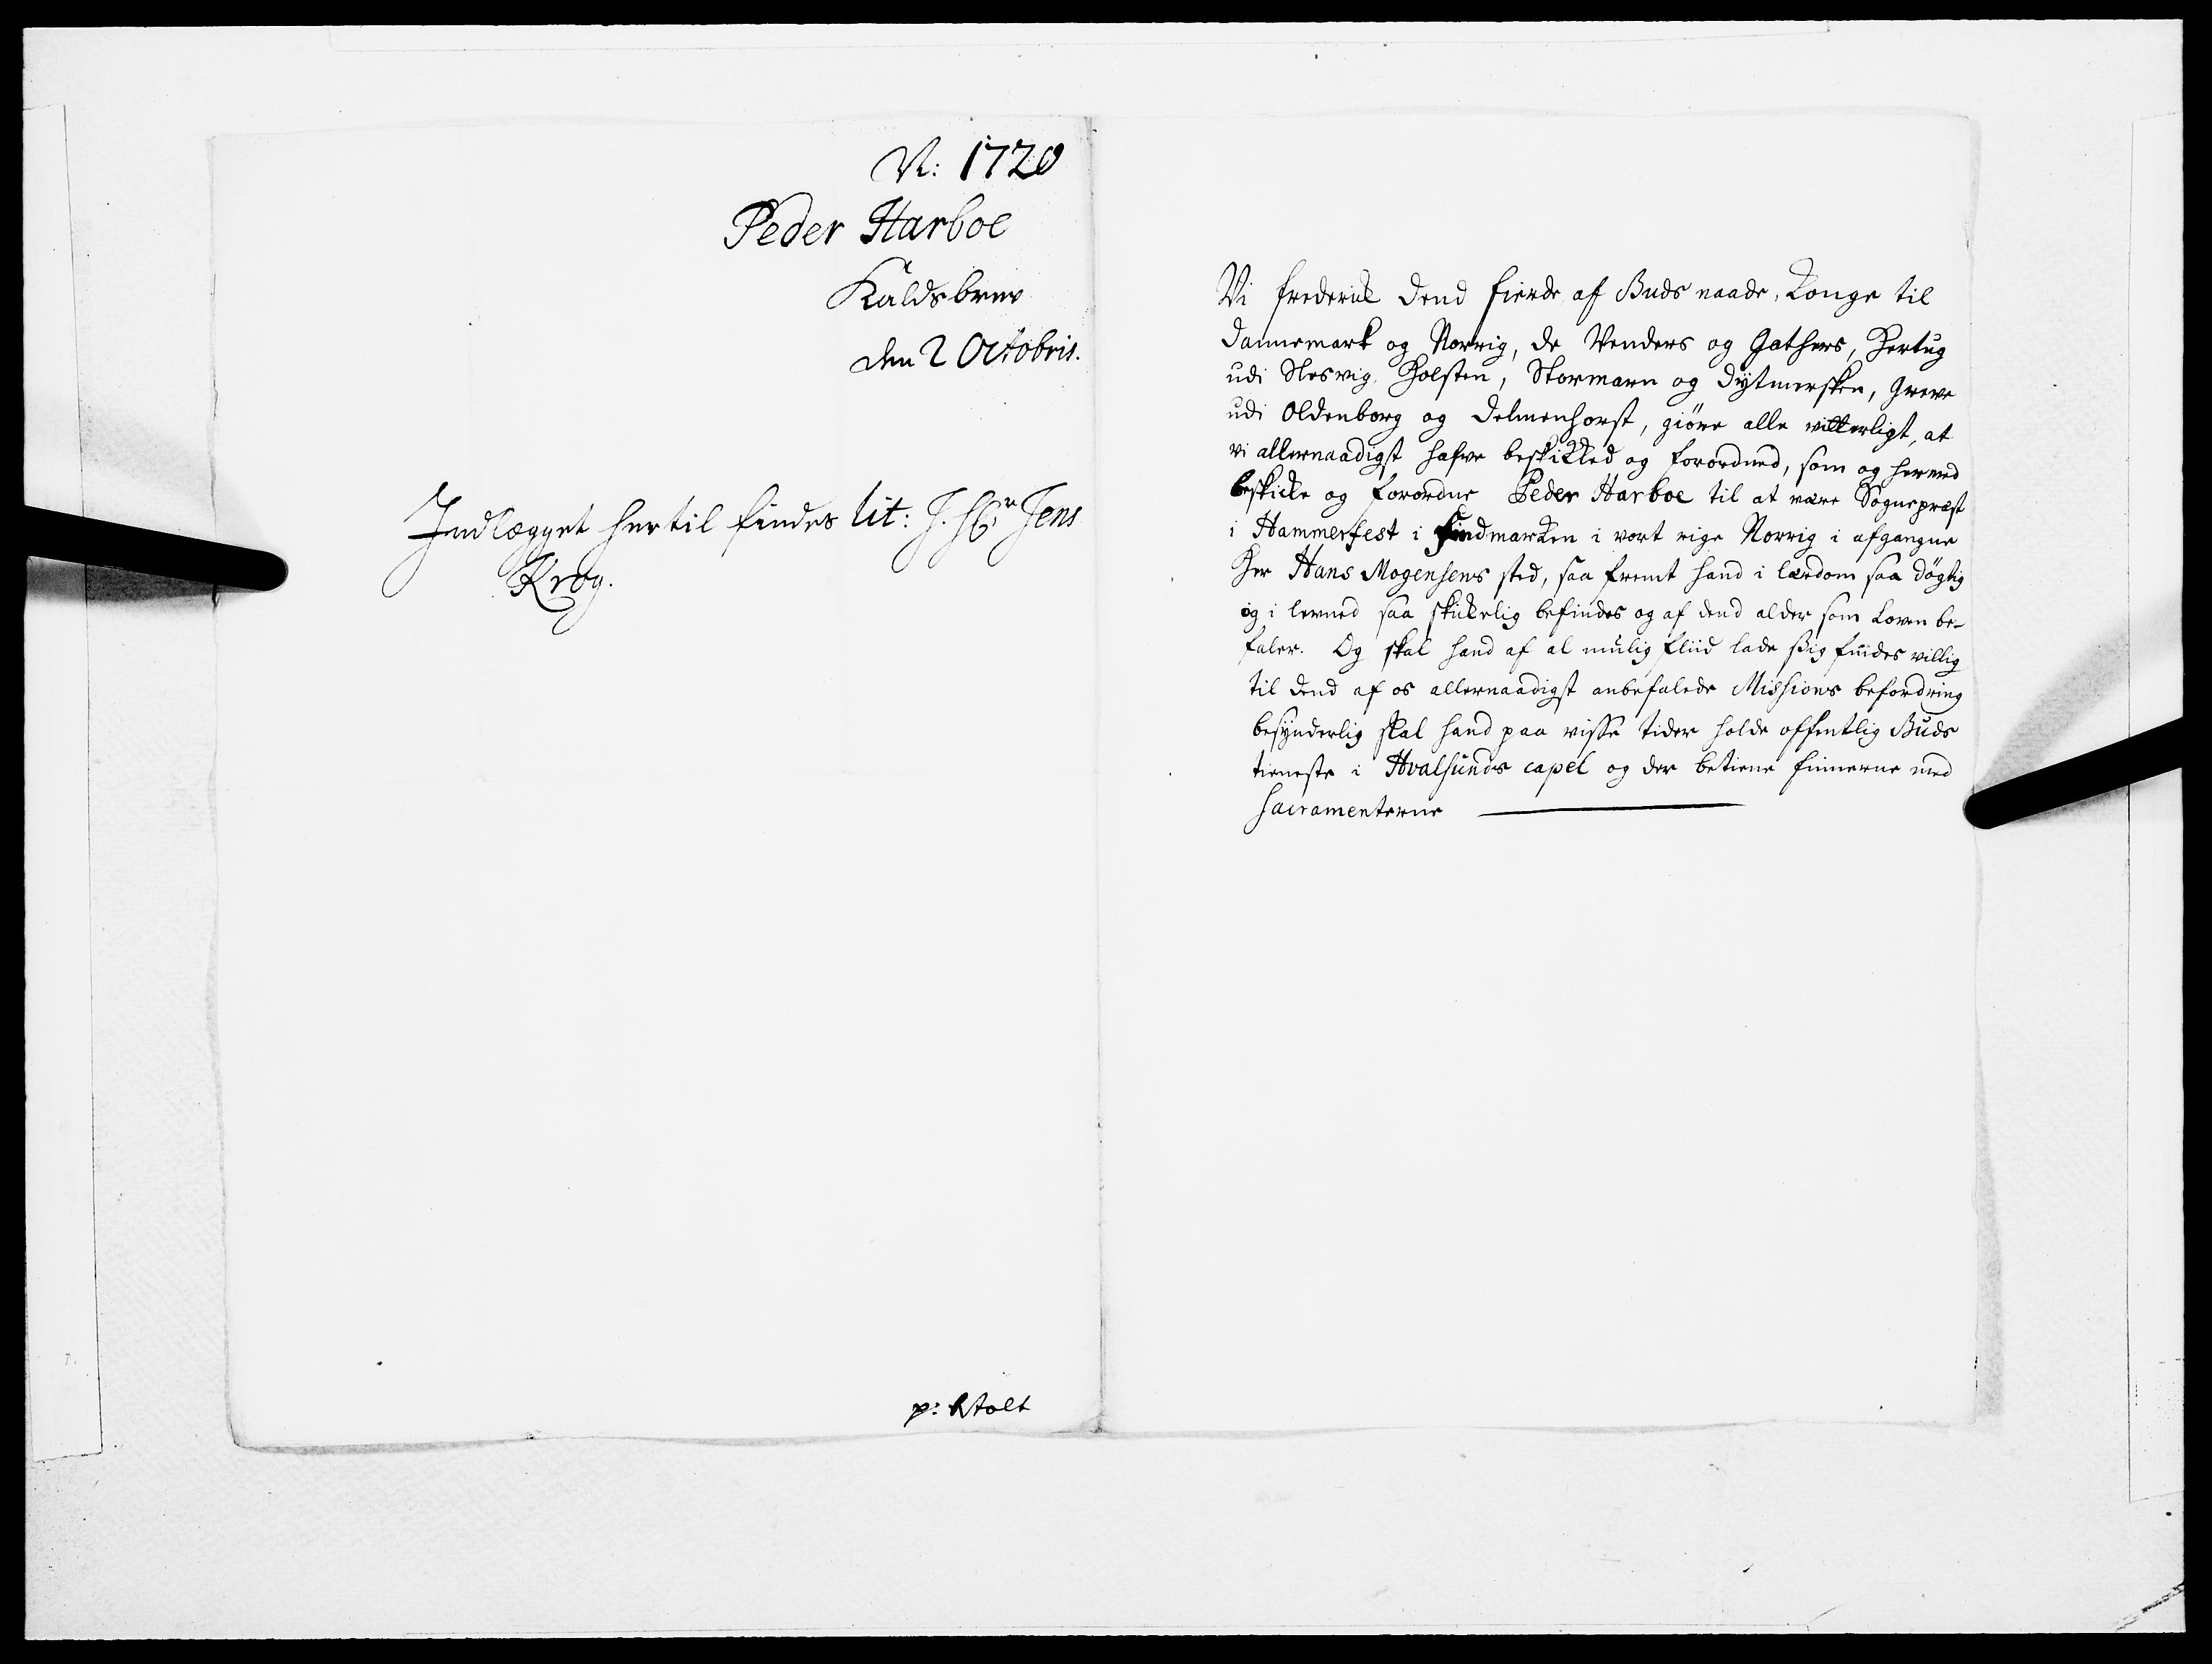 N: 1720
Peder Harboe
Kaldsbrev
den 2 Octobris.
Indlægget hertil findes lit: J. Hr Jens
Krog.
p: Stolt
Vi Frederik dend fierde af Guds naade, Konge til
Dannemark og Norrig, de Venders og Gothers, Hertug
udi Slesvig Holsten, Stormarn og Dytmersken, Greve
udi Oldenborg og Delmenhorst, giöre alle vitterligt, at
vi allernaadigst hafve beskikked og forordned, som og hermed
beskicke og forordne Peder Harboe til at være Sognepræst
i Hammerfest i Findmarken i vort rige Norrig i afgangne
Her Hans Mogensens sted, saa fremt hand i lærdom saa dögtig
og i levned saa skickelig befindes og af dend alder som Loven be-
faler. Og skal hand af al mulig fliid lade sig findes villig
til dend af os allernaadigst anbefalede Missions befordring
besynderlig skal hand paa visse tider holde offentlig Guds
tieneste i Hvalsunds capel og der betiene finnerne med
Sacramenterne